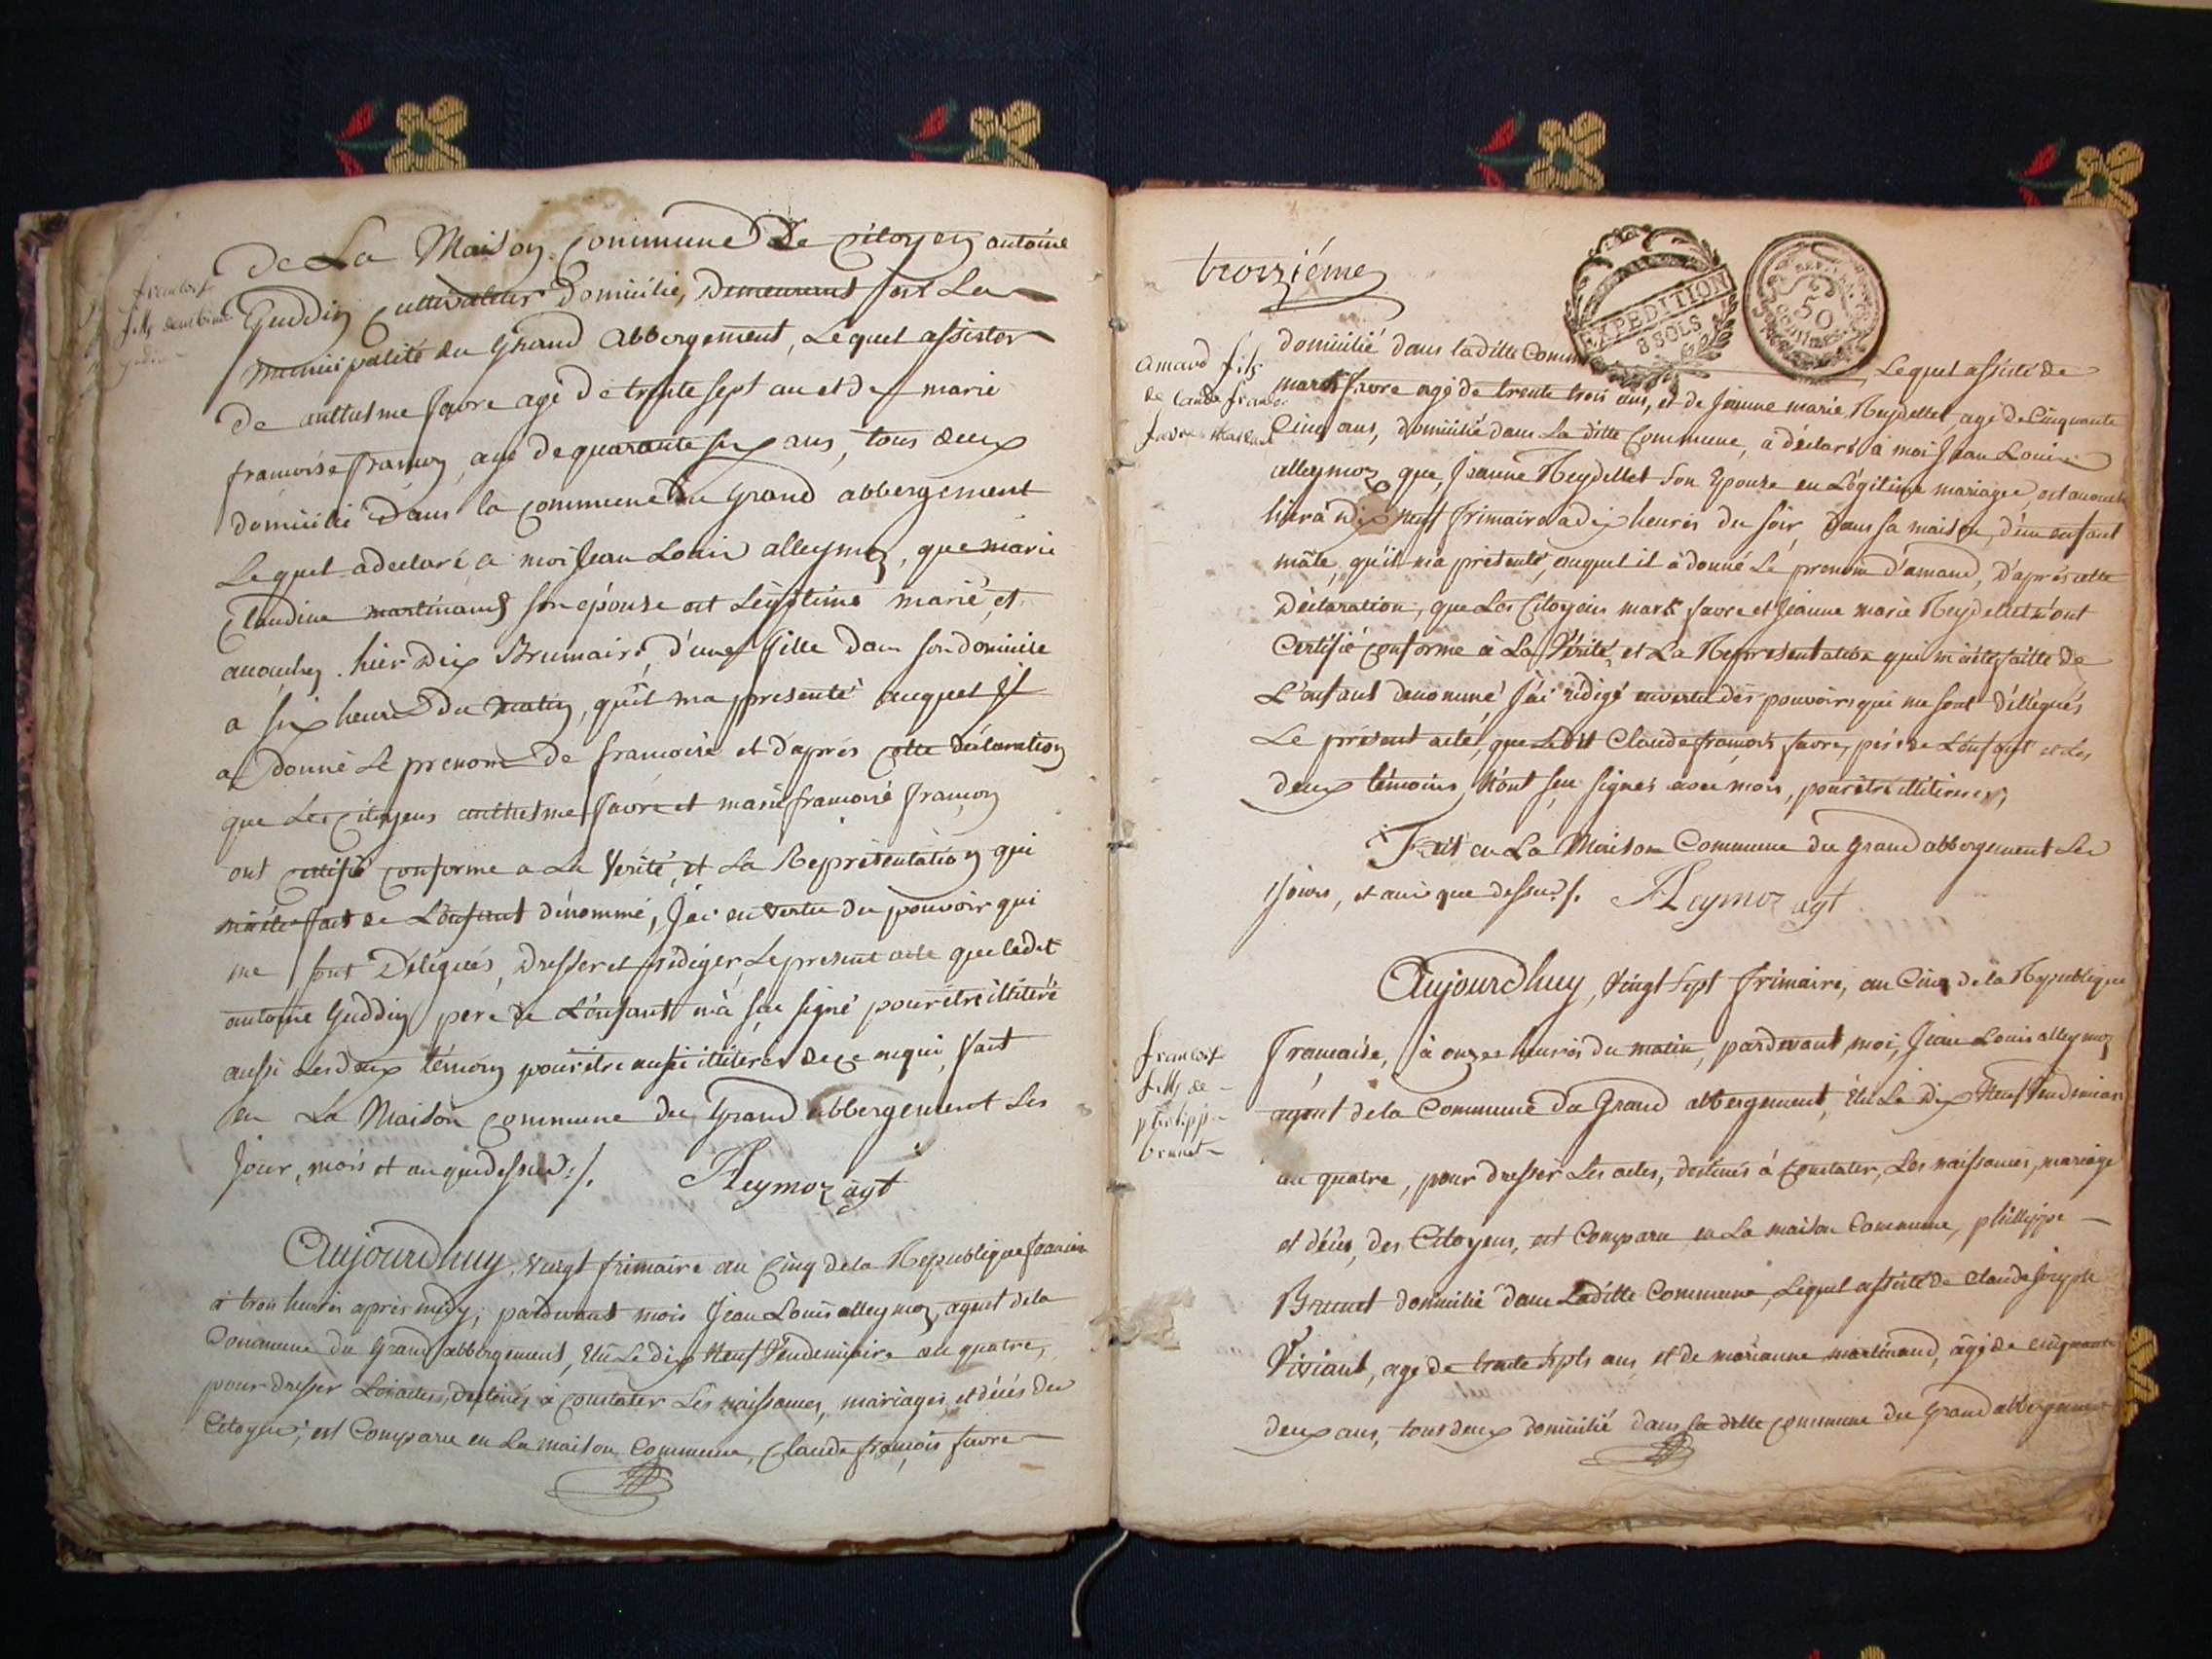 françoise
fille d'anthoine
gudin
de La Maison Commune Le Citoyen antoine
Guddin Cultivateur Domicilié, Demeurant sur La
Municipalité du Grand Abbergement, Lequel assister
De anthelme favre agé de trente sept an et de marie
françoise françon, agé de quarante six ans, tous deux
domicilié Dans la Commune du Grand abbergement
Lequel a declaré a moi Jean Louis alleymoz, que marie
Claudine martinand son epouse est Legitime marié et
anoucher hier Dix Brumaire, d'une fille Dans son domicile
a six heures Du Matin, qu'il ma presenté auquel il
a Donné Le prenom De francoise et d'aprés cette declaration
que Les Citoyens anthelme favre et marie francoise françon
ont certifié conforme a La Verité, et La Représentation qui
m'a été fait de L'enfant dénommé, J'ai en vertu du pouvoir qui
me sont Délégués, Dresser et rédiger Le present acte que ledit
antoine Guddin pere de L'enfant n'a seu signé pour être illiteré
aussi Les deux témoins pour être aussi illiterés de ce enqui, fait
en La Maison Commune du Grand abbergement Les
Jour, mois et an que dessus ./.
Aleymoz agt
Aujourdhuy, vingt frimaire an Cinq de la Republique francaise
à trois heures après midy, pardevant mois Jean Louis alleymoz, agent de la
Commune du Grand abbergement, Elu Le dix Neuf Vendemiaire an quatre,
pour dresser Les actes, destinés à constater Les naissances, mariages, et décés des
Citoyens, est Comparu en La maison Commune, Claude françois favre
troizième
EXPEDITION
8 SOLS
50
amand fils
de claude françois
favre
domicilié dans la ditte Commune, Lequel assisté de
mark favre agé de trente trois ans, et de Jeanne marie Reydellet, agé de Cinquante
Cinq ans, domicilié dans La ditte Commune, a déclaré à moi Jean Louis
alleymoz que, Jeanne Reydellet son Epouse en Légitime mariage, est anouché
hier a Dix neuf frimaire a dix heures du soir, Dans sa maison, d'un enfant
mâle, qu'il m'a présenté, auquel il à donné Le prenom d'amand, D'aprés cette
Déclaration, que Les Citoyens mark favre et Jeanne marie Reydellet m'ont
Certifié conforme à La Vérité, et La Représentation qui m'a été faitte de
L'enfant denommé, J'ai rédigé en vertu des pouvoirs qui me sont délégués
Le présent acte, que Ledit Claude françois favre, pére de L'enfant et Les
deux témoins, N'ont seu signés avec mois, pour être illiterés,
Fait en La Maison Commune du Grand abbergement Les
Jours, et an que dessus ./. Aleymoz agt
françoise
fille de
philippe
brunet
Aujourdhuy, Vingt Sept frimaire, an Cinq de la Republique
française, à onzes heures du matin, pardevant moi, Jean Louis alleymoz
agent de la Commune du Grand abbergement, Elu Le Dix Neuf Vendemiaire
an quatre, pour dresser Les actes, destinés à constater, Les naissances, mariage
et décés, des Citoyens, est Comparu en La maison Commune, phillippe
Brunet domicilié dans Laditte Commune, Lequel assisté de Claude Joseph
Viviant, agé de trente septs ans, et de marianne martinand, âgé de cinquante
deux ans, tous deux domicilié dans la ditte commune du Grand abbergement